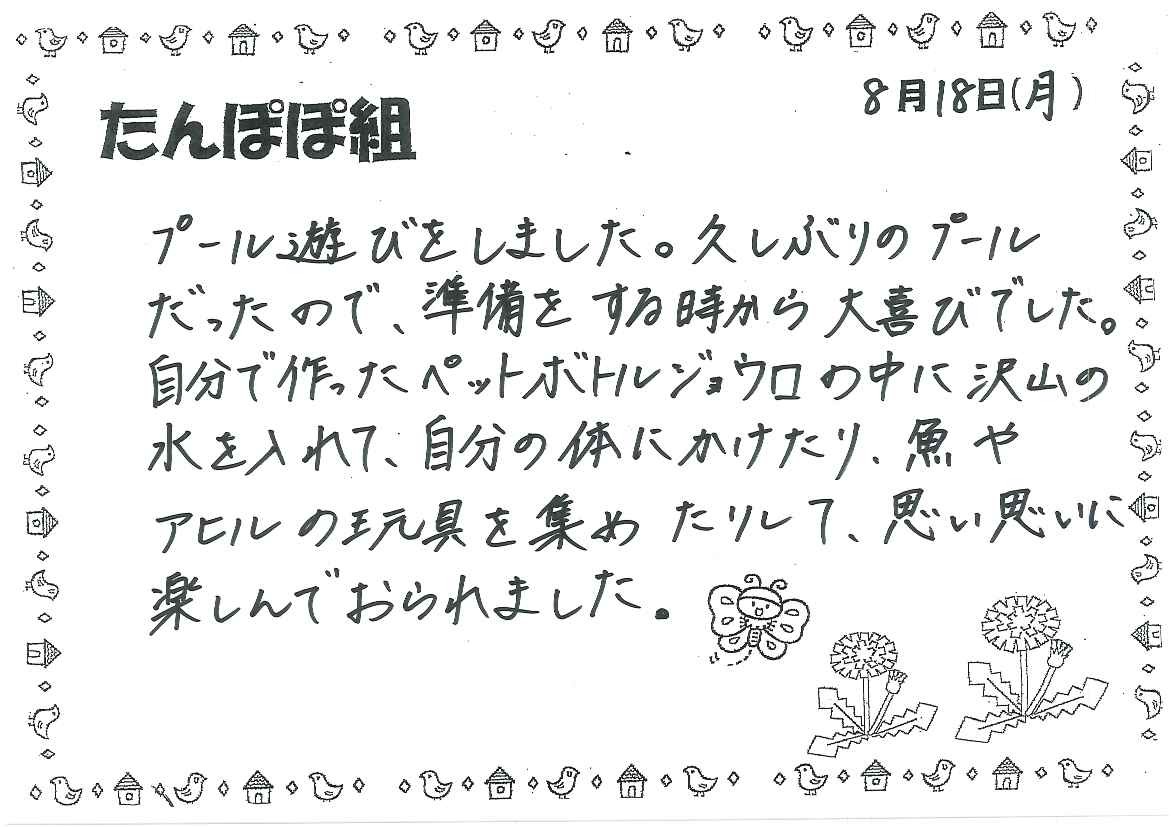 8月18日(月)
たんぽぽ組
プール遊びをしました。久しぶりのプール
だったので、準備をする時から大喜びでした。
自分で作ったペットボトルジョウロの中に沢山の
水を入れて、自分の体にかけたり、魚や
アヒルの玩具を集めたりして、思い思いに
楽しんでおられました。